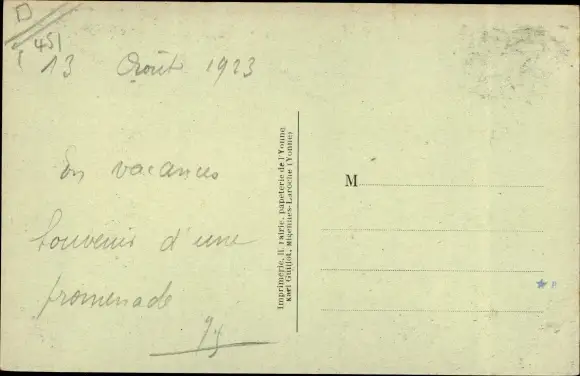 D
451
13 Août 1923
En vacances
Souvenir d'une
promenade
Imprimerie, li rairie, papeterie de l'Yonne
Karl Guillot, Migennes-Laroche (Yonne)
M